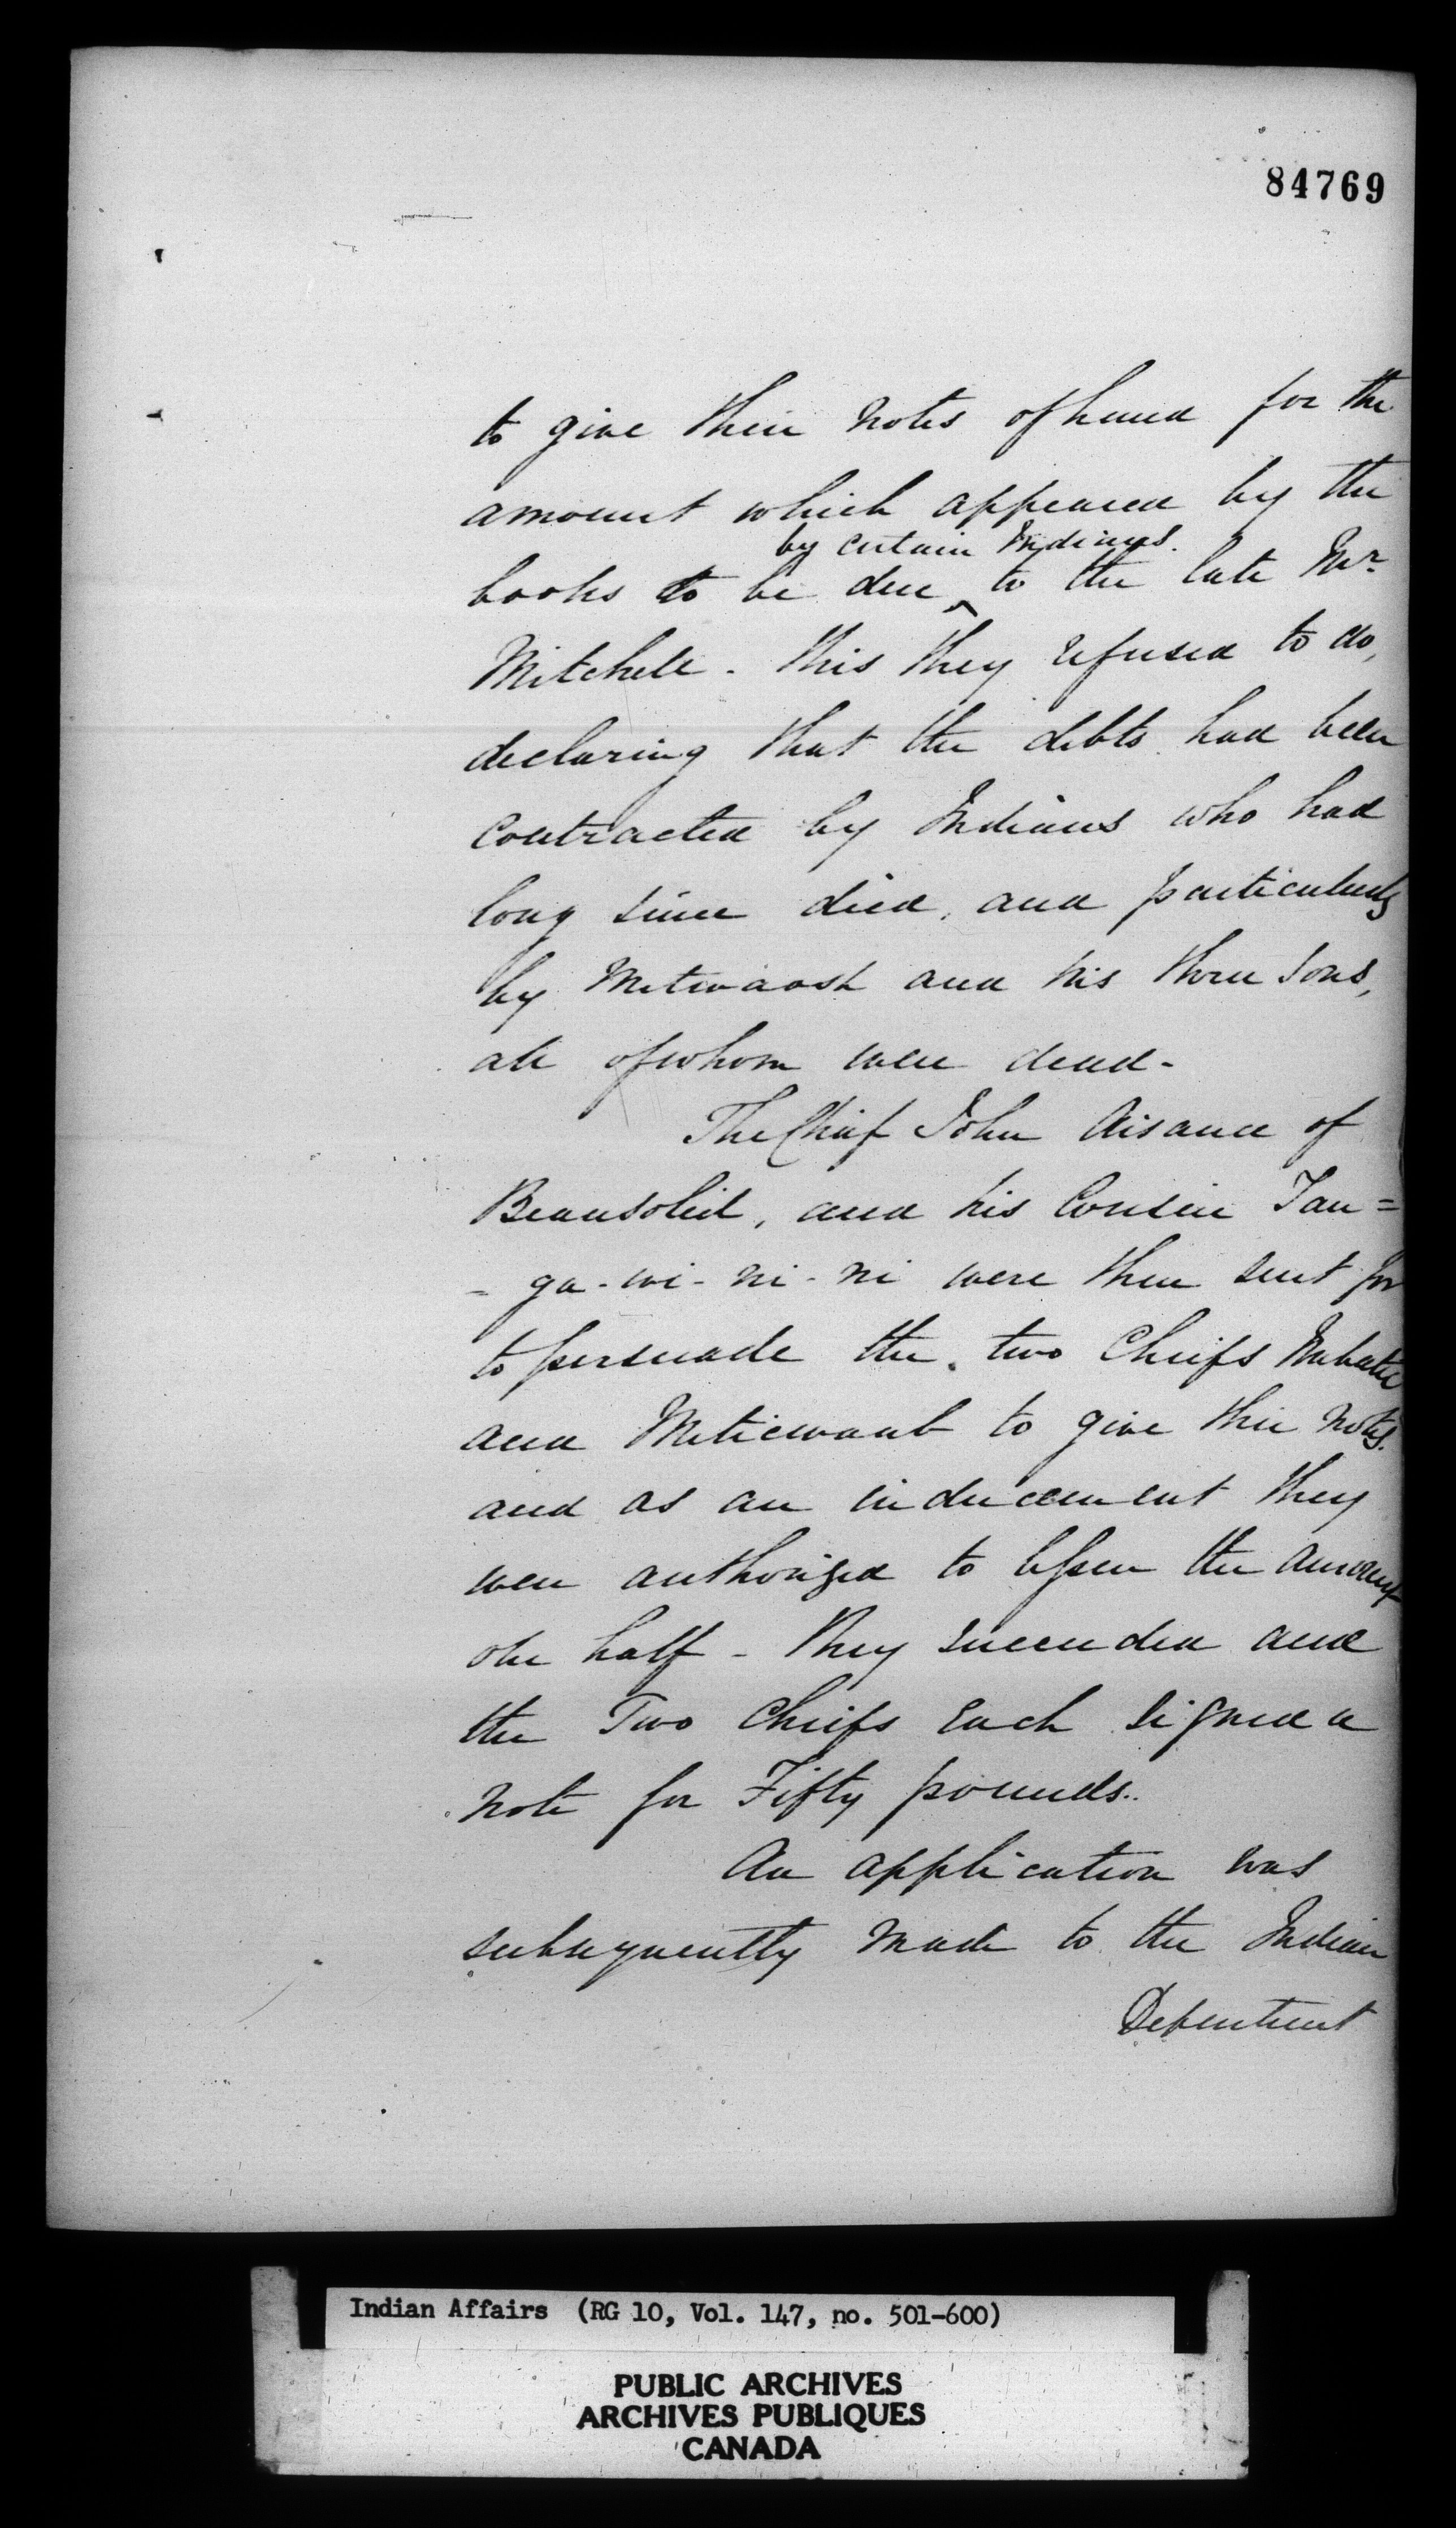 84769
to give their notes of hand for the
amount which appeared by the
by certain Indians.
books to be due ^ to the late Mr.
Mitchell - This they refused to do,
declaring that the debts had been
contracted by Indians who had
long since died, and particularly
by Metwaash and his three sons,
all of whom were dead -
The Chief John Aisance of
Beausoleil, and his Cousin Tau=
= ga-wi-ni-ni were then sent for
to persuade the two Chiefs
and to give their notes.
and as an inducement they
were authorized to lessen the amount
one half - They succeeded and
the Two Chiefs each signed a
note for Fifty pounds..
An application was
subsequently made to the Indian
Department
Indian Affairs (RG 10, Vol. 147, no. 501-600)
PUBLIC ARCHIVES
ARCHIVES PUBLIQUES
CANADA